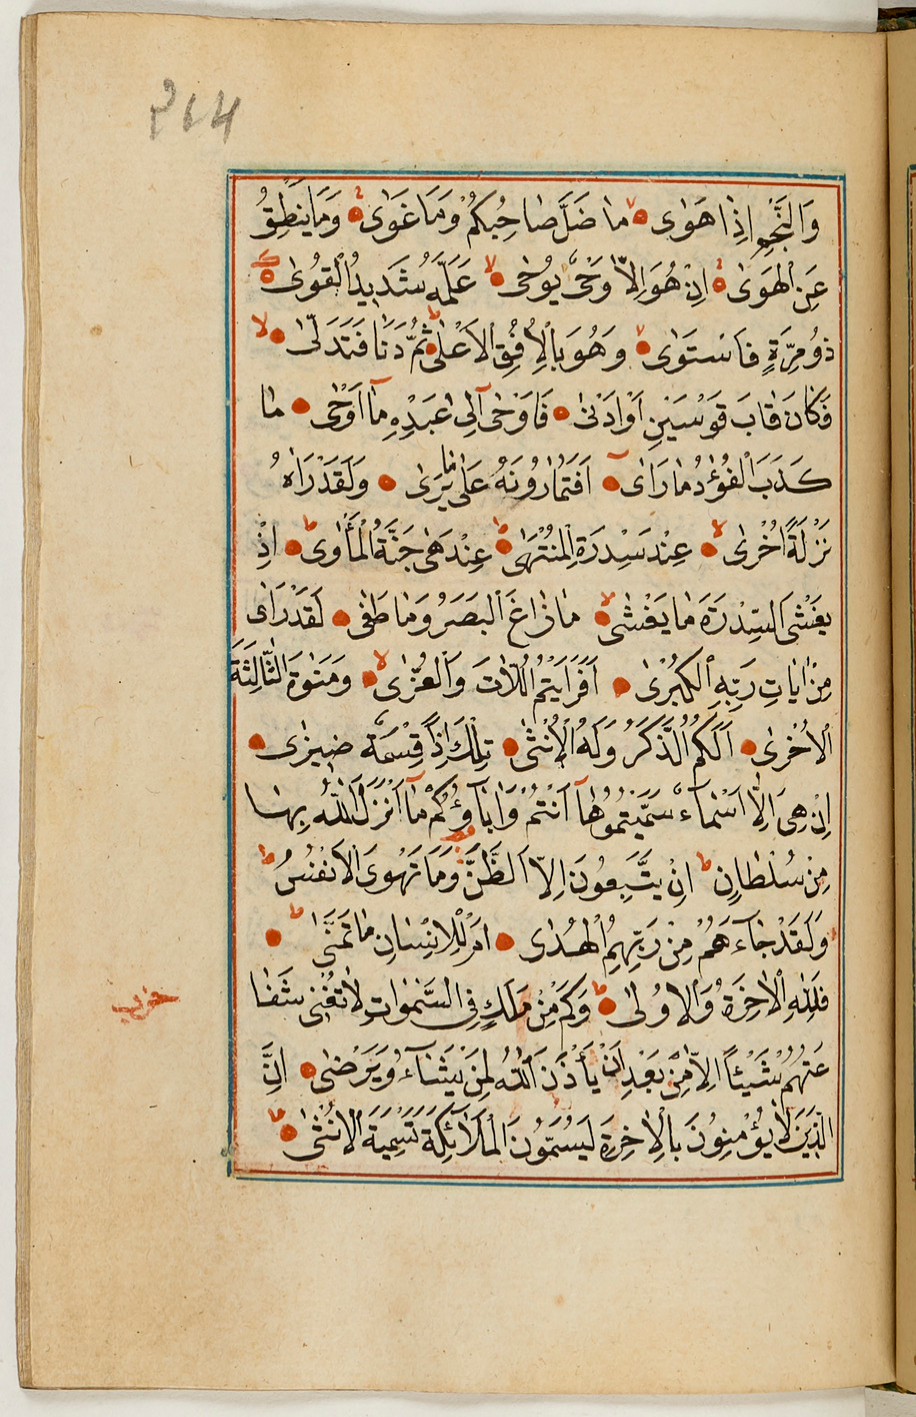 وَالنَّجْمِ اِذَا هَوٰى مَا ضَلَّ صَاحِبُكُمْ وَمَا غَوٰى وَمَا يَنْطِقُ
عَنِ الْهَوٰى اِنْ هُوَ اِلَّا وَحْىٌ يُوحٰى عَلَّمَهُ شَدِيدُ الْقُوٰى
ذُو مِرَّةٍ فَاسْتَوٰى وَهُوَ بِالْاُفُقِ الْاَعْلٰى ثُمَّ دَنَا فَتَدَلّٰى
فَكَانَ قَابَ قَوْسَيْنِ اَوْ اَدْنٰى فَاَوْحٰى اِلٰى عَبْدِهِ مَا اَوْحٰى مَا
كَذَبَ الْفُؤٰدُ مَا رَاٰى اَفَتُمَارُونَهُ عَلٰى مَا يَرٰى وَلَقَدْ رَاٰهُ
نَزْلَةً اُخْرٰى عِنْدَ سِدْرَةِ الْمُنْتَهٰى عِنْدَهَا جَنَّةُ الْمَأْوٰى اِذْ
يَغْشَى السِّدْرَةَ مَا يَغْشٰى مَا زَاغَ الْبَصَرُ وَمَا طَغٰى لَقَدْ رَاٰى
مِنْ اٰيَاتِ رَبِّهِ الْكُبْرٰى اَفَرَاَيْتُمُ اللَّاتَ وَالْعُزّٰى وَمَنٰوةَ الثَّالِثَةَ
الْاُخْرٰى اَلَكُمُ الذَّكَرُ وَلَهُ الْاُنْثٰى تِلْكَ اِذًا قِسْمَةٌ ضِيزٰى
اِنْ هِىَ اِلَّا اَسْمَاءٌ سَمَّيْتُمُوهَا اَنْتُمْ وَاٰبَاؤُكُمْ مَا اَنْزَلَ اللّٰهُ بِهَا
مِنْ سُلْطَانٍ اِنْ يَتَّبِعُونَ اِلَّا الظَّنَّ وَمَا تَهْوَى الْاَنْفُسُ
وَلَقَدْ جَاءَهُمْ مِنْ رَبِّهِمُ الْهُدٰى اَمْ لِلْاِنْسَانِ مَا تَمَنّٰى
فَلِلّٰهِ الْاٰخِرَةُ وَالْاُولٰى وَكَمْ مِنْ مَلَكٍ فِى السَّمٰوَاتِ لَا تُغْنِى شَفَا
عَتُهُمْ شَيْئًا اِلَّا مِنْ بَعْدِ اَنْ يَأْذَنَ اللّٰهُ لِمَنْ يَشَاءُ وَيَرْضٰى اِنَّ
الَّذِينَ لَا يُؤْمِنُونَ بِالْاٰخِرَةِ لَيُسَمُّونَ الْمَلَائِكَةَ تَسْمِيَةَ الْاُنْثٰى